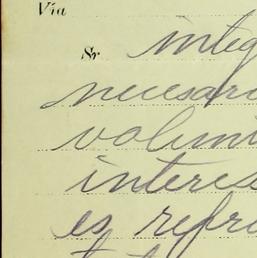 Vía
Sr integ
necesari
volunt
interes
es refre